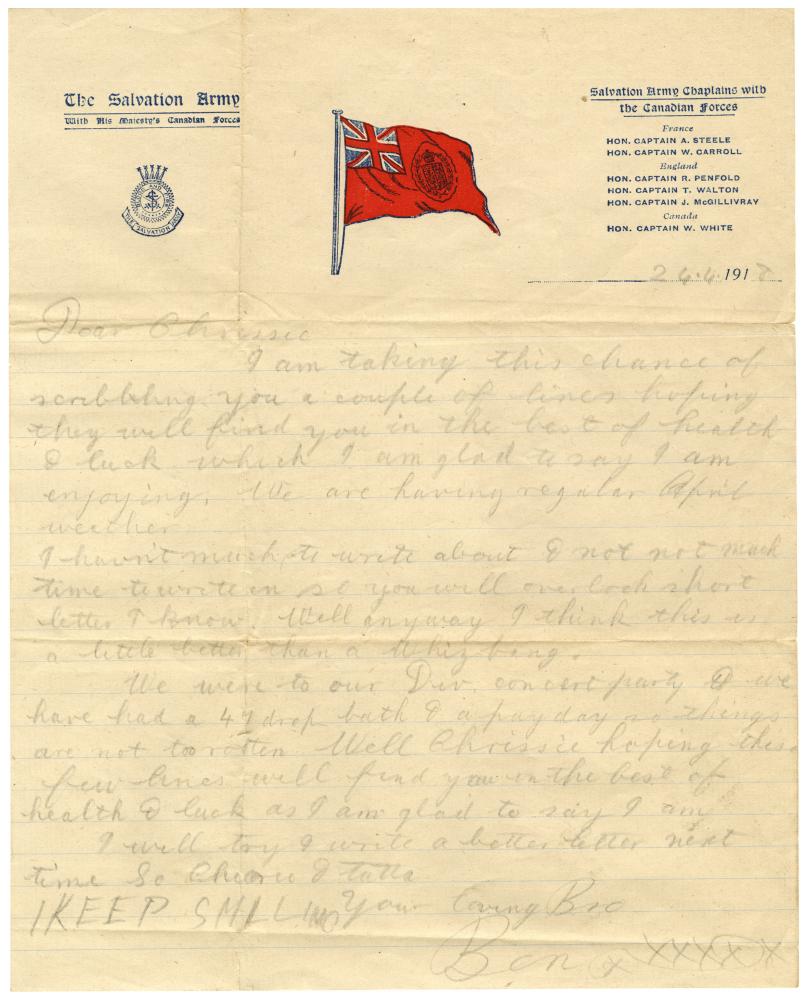 The Salvation Army
With His Majesty's Canadian Forces
BLOOD AND FIRE
THE SALVATION ARMY
Salvation Army Chaplains with
the Canadian Forces
France
HON. CAPTAIN A. STEELE
HON. CAPTAIN W. CARROLL
England
HON. CAPTAIN R. PENFOLD
HON. CAPTAIN T. WALTON
HON. CAPTAIN J. McGILLIVRAY
Canada
HON. CAPTAIN W. WHITE
24.4.1918
Dear Chrissie
I am taking this chance of
scribbling you a couple of lines hoping
they will find you in the best of health
& luck which I am glad to say I am
enjoying. We are having regular April
weather
I havn't much to write about & not not much
time to write in so you will overlook short
letter I know. Well anyway I think this is
a little better than a Whizbang.
We were to our Div. concert party & we
have had a 47 drop bath & a pay day so things
are not too rotten. Well Chrissie hoping these
few lines will find you in the best of
health & luck as I am glad to say I am
I will try & write a better letter next
time So Cheerio & tatta
KEEP SMILING Your Loving Bro
Ben x xxxxx